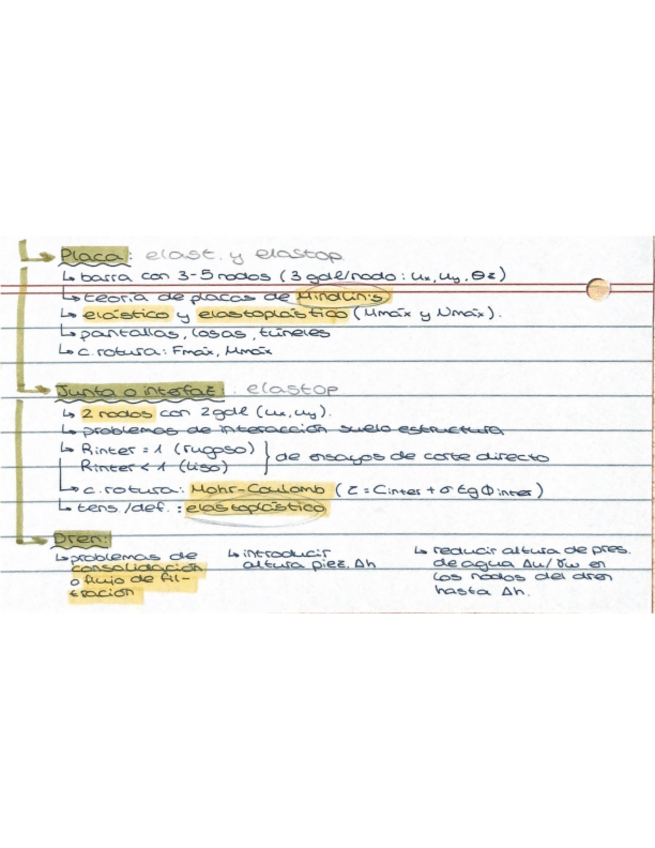 ↳ Placa: elast. y elastop
↳ barra con 3-5 nodos (3 gdl/nodo: ux, uy, θz)
↳ teoría de placas de Mindlin's
↳ elástico y elastoplástico (Mmáx y Nmáx).
↳ pantallas, losas, túneles
↳ c. rotura: Fmáx, Mmáx
↳ Junta o interfaz: elastop
↳ 2 nodos con 2 gdl (ux, uy).
↳ problemas de interacción suelo estructura
↳ Rinter = 1 (rugoso)
Rinter < 1 (liso)
} de ensayos de corte directo
↳ c. rotura: Mohr-Coulomb (τ = Cinter + σ tg Φinter)
↳ tens./def.: elastoplástico
↳ Dren:
↳ problemas de
consolidación
o flujo de fil-
tración
↳ introducir
altura piez. Δh
↳ reducir altura de pres.
de agua Δu/γw en
los nodos del dren
hasta Δh.